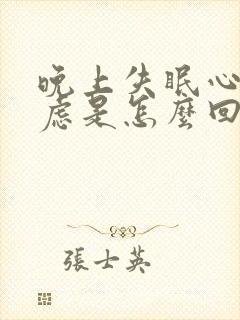 晚上失眠心
虑是怎麼回
張士英